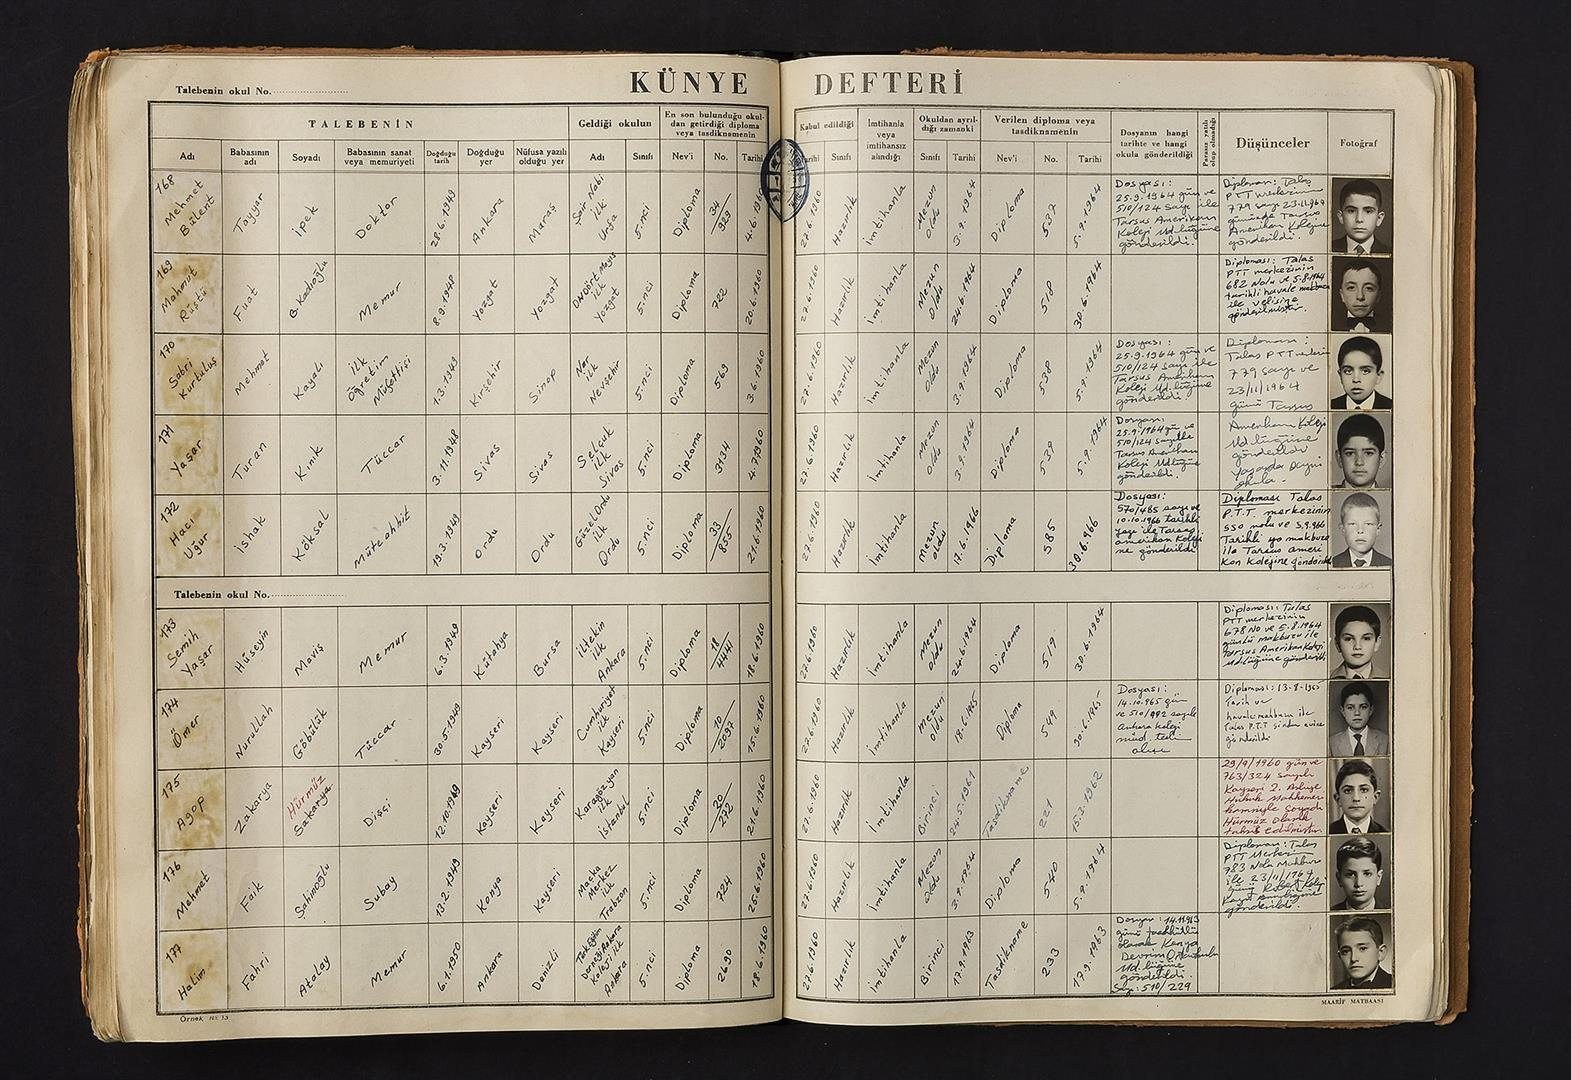 Talebenin okul No.
KÜNYE DEFTERİ
TALEBENİN
Geldiği okulun
En son bulunduğu okuldan getirdiği diploma veya tasdiknamenin
Kabul edildiği
İmtihanla veya imtihansız alındığı
Okuldan ayrıldığı zamanki
Verilen diploma veya tasdiknamenin
Dosyanın hangi tarihte ve hangi okula gönderildiği
Parasız yatılı olup olmadığı
Düşünceler
Fotoğraf
Adı Babasının adı Soyadı Babasının sanat veya memuriyeti Doğduğu tarih Doğduğu yer Nüfusa yazılı olduğu yer Adı Sınıfı Nev'i No. Tarihi
Sınıfı Sınıfı Tarihi Nev'i No. Tarihi
168 Mehmet Bülent Tayyar İpek Doktor 1949 Ankara Maraş Şair Nabi İlk Urfa 5.nci Diploma 34/929 4.6.1960
27.6.1960 Hazırlık İmtihanla Mezun oldu 3.9.1964 Diploma 537 5.9.1964
Dosyası:
25.9.1964 gün ve
510/124 sayı ile
Tarsus Amerikan
Koleji Md.lüğüne
gönderildi.
Diploması: Talas
PTT merkezinin
779 sayı 23.11.1964
gününde Tarsus
Amerikan Kolejine
gönderildi.
169 Mahmut Rüştü Fuat B.Kadıoğlu Memur 8.9.1948 Yozgat Yozgat Dikdört Mayıs İlk Yozgat 5.nci Diploma 722 20.6.1960
27.6.1960 Hazırlık İmtihanla Mezun oldu 24.6.1964 Diploma 518 30.6.1964
Diploması: Talas
PTT merkezinin
682 Nolu ve 5.8.1964
tarihli havale makbuzu
ile velisine
gönderilmiştir.
170 Sabri Kurtuluş Mehmet Kayalı İlk Öğretim Müfettişi 1.3.1949 Kırşehir Sinop Nar İlk Nevşehir 5.nci Diploma 569 3.6.1960
27.6.1960 Hazırlık İmtihanla Mezun oldu 3.9.1964 Diploma 538 5.9.1964
Dosyası:
25.9.1964 gün ve
510/124 sayı ile
Tarsus Amerikan
Koleji Md.lüğüne
gönderildi.
Diploması:
Talas PTT merkezinin
779 sayı ve
23/11/1964
günü Tarsus
Amerikan Koleji
Md.lüğüne
gönderildi
171 Yaşar Turan Kınık Tüccar 3.11.1948 Sivas Sivas Selçuk İlk Sivas 5.nci Diploma 3134 4.7.1960
27.6.1960 Hazırlık İmtihanla Mezun oldu 3.9.1964 Diploma 539 5.9.1964
Dosyası:
25.9.1964 gün ve
510/124 sayı ile
Tarsus Amerikan
Koleji Md.lüğüne
gönderildi.
172 Hacı Uğur İshak Köksal Müteahhit 19.3.1949 Ordu Ordu Güzel Ordu İlk Ordu 5.nci Diploma 33/855 21.6.1960
27.6.1960 Hazırlık İmtihanla Mezun oldu 17.6.1966 Diploma 585 30.6.966
Dosyası:
570/485 sayı ve
10.10.1966 tarihli
yazı ile Tarsus
amerikan Koleji
ne gönderildi
Diploması Talas
P.T.T. merkezinin
550 nolu ve 5.9.966
Tarihli makbuzu
ile Tarsus ameri
kan kolejine gönderildi
Talebenin okul No.
173 Semih Yaşar Hüseyin Maviş Memur 6.3.1949 Kütahya Bursa İltekin İlk Ankara 5.nci Diploma 18/4441 18.6.1960
27.6.1960 Hazırlık İmtihanla Mezun oldu 24.6.1964 Diploma 519 30.6.1964
Diploması: Talas
PTT merkezinin
678 No ve 5.8.1964
günlü makbuzu ile
Tarsus Amerikan Koleji
Md.lüğüne gönderildi
174 Ömer Nurullah Göbülük Tüccar 30.5.1949 Kayseri Kayseri Cumhuriyet İlk Kayseri 5.nci Diploma 10/2097 15.6.1960
27.6.1960 Hazırlık İmtihanla Mezun oldu 18.6.1965 Diploma 549 30.6.1965
Dosyası:
14.10.965 gün
ve 510/992 sayıle
Ankara koleji
müd.
Diploması: 13.8.1965
Tarih ve
havale makbuzu ile
Talas P.T.T.
gönderildi
175 Agop Zakarya Hürmüz Sakarya Dişçi 12.10.1949 Kayseri Kayseri Karagözyan İlk İstanbul 5.nci Diploma 20/272 21.6.1960
27.6.1960 Hazırlık İmtihanla Birinci 24.5.1961 Tasdikname 221 15.3.1962
29/9/1960 gün ve
763/324 sayılı
Kayseri 2. Asliye
Hukuk Mahkemesi
kararıyle soyadı
Hürmüz olarak
tashih edilmiştir
176 Mehmet Faik Şahinoğlu Subay 13.2.1949 Konya Kayseri Maçka Merkez İlk Trabzon 5.nci Diploma 724 25.6.1960
27.6.1960 Hazırlık İmtihanla Mezun oldu 3.9.1964 Diploma 540 5.9.1964
Diploması: Talas
PTT Merkezi
783 Nolu Makbuz
ile 23/11/1964
günü Robert Koleji
gönderildi.
177 Halim Fahri Atalay Memur 6.1.1950 Ankara Denizli Türk Eğitim Derneği Ankara Koleji İlk Ankara 5.nci Diploma 2690 18.6.1960
27.6.1960 Hazırlık İmtihanla Birinci 17.9.1963 Tasdikname 233 17.9.1963
Dosyası: 14.11.963
günü taahhütlü
olarak Konya
Devrim Ortaokulu
Md.lüğüne
gönderildi.
Sayı: 510/229
Örnek
MAARİF MATBAASI